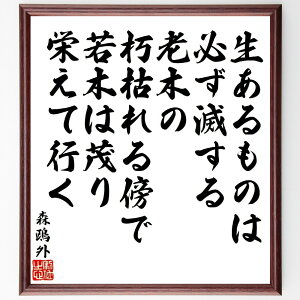 生あるものは
必ず滅する
老木の
朽枯れる傍で
若木は茂り
栄えて行く
森鴎外